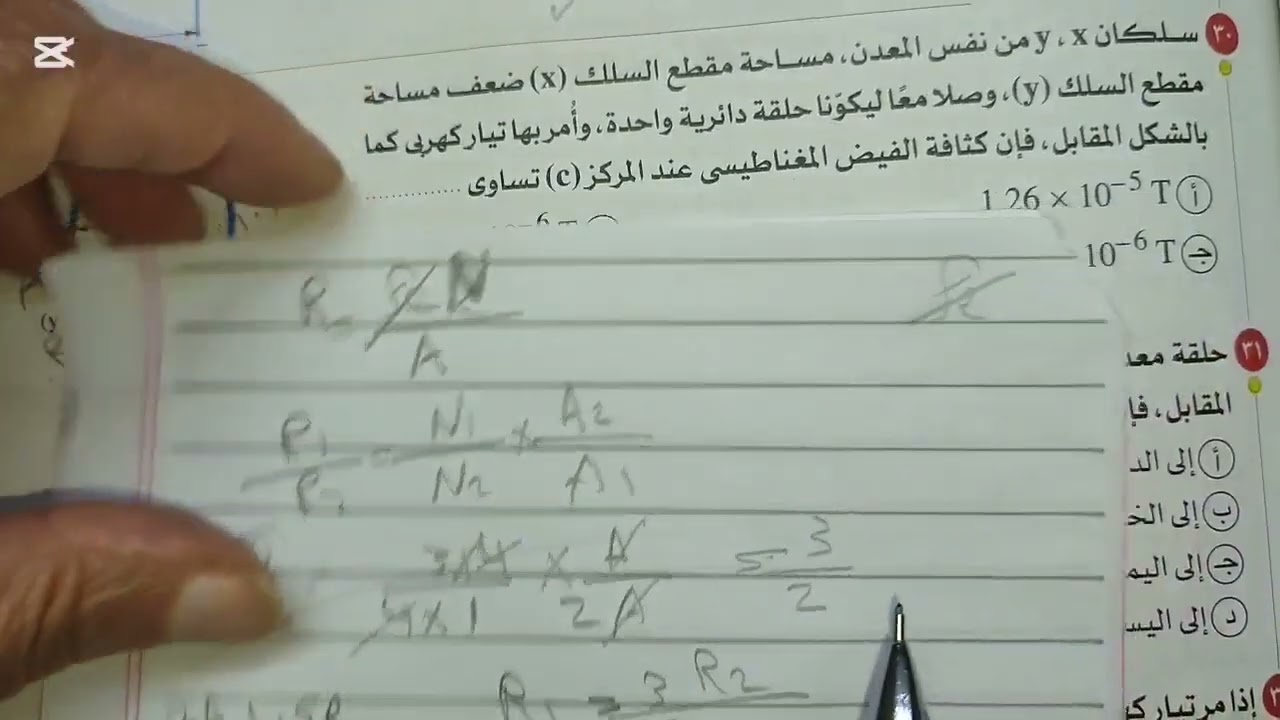 ٣٠ سلكان x ، y من نفس المعدن، مساحة مقطع السلك (x) ضعف مساحة
مقطع السلك (y)، وصلا معًا ليكوّنا حلقة دائرية واحدة، وأُمر بها تيار كهربى كما
بالشكل المقابل، فإن كثافة الفيض المغناطيسى عند المركز (c) تساوى ..............
أ 1.26 × 10⁻⁵ T
جـ 10⁻⁶ T
A
N1 × A2
N2 A1
× A = 3
×1 2A 2
R1 = 3 R2
٣١ حلقة معد
المقابل، فإ
أ إلى الد
ب إلى الخ
جـ إلى اليم
د إلى اليس
إذا مر تيار ك